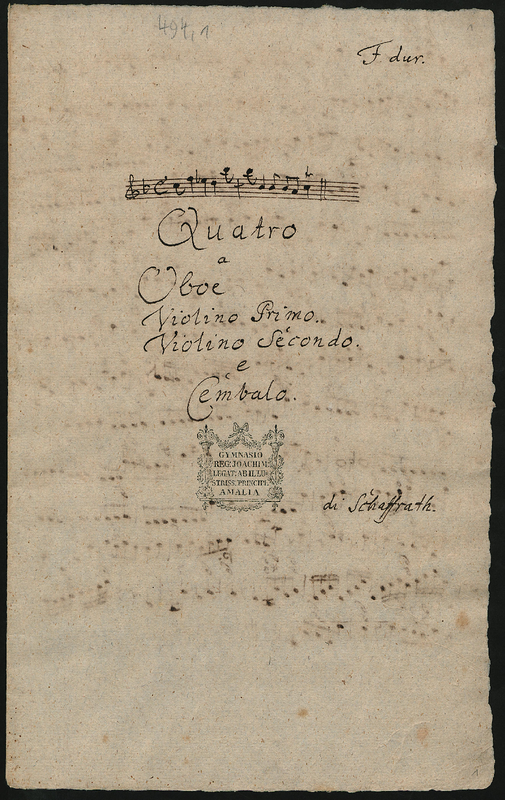 494,1
F dur.
Quatro
a
Oboe
Violino Primo.
Violino Secondo.
e
Cembalo.
GYMNASIO
REG. JOACHIM.
LEGAT. AB ILLU-
STRISS. PRINCIPE
AMALIA
di Schaffrath.
1